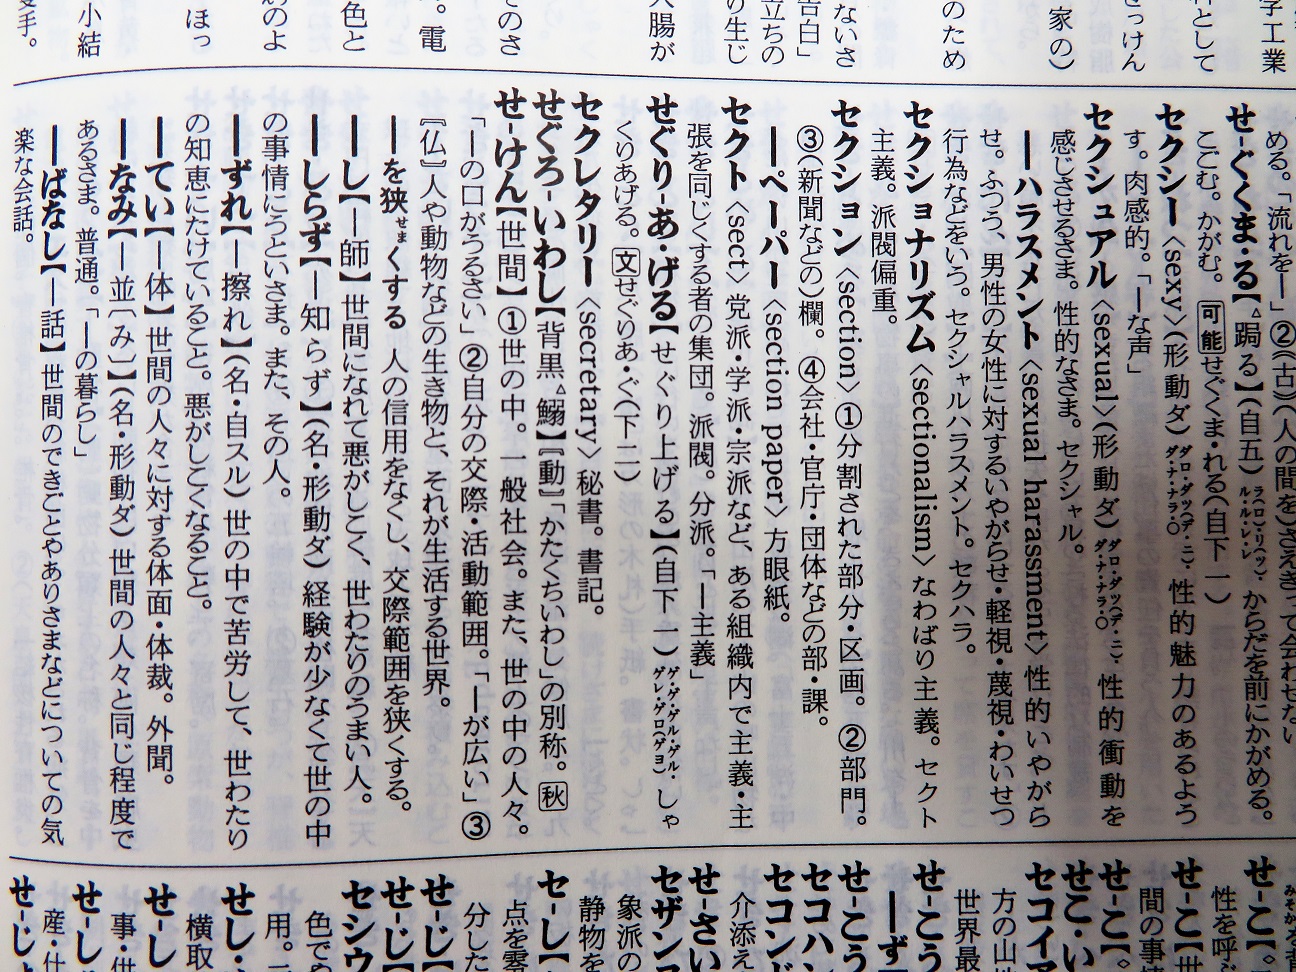 学工業
として
せっけん
家の)
のため
ないさ
告白」
立ちの
の生じ
大腸が
のさ
。電
色と
のよ
ほっ
小結
手。
める。「流れを―」②《古》(人の間を)さえぎって会わせない
せ-ぐくま・る【△跼る】(自五)ラ(ロ)・リ(ッ)・ル・ル・レ・レ からだを前にかがめる。
こごむ。かがむ。可能せぐくま・れる(自下一)
セクシー〈sexy〉(形動ダ)ダロ・ダッ(デ・ニ)・ダ・ナ・ナラ・○ 性的魅力のあるよう
す。肉感的。「―な声」
セクシュアル〈sexual〉(形動ダ)ダロ・ダッ(デ・ニ)・ダ・ナ・ナラ・○ 性的衝動を
感じさせるさま。性的なさま。セクシャル。
―ハラスメント〈sexual harassment〉性的いやがら
せ。ふつう、男性の女性に対するいやがらせ・軽視・蔑視・わいせつ
行為などをいう。セクシャルハラスメント。セクハラ。
セクショナリズム〈sectionalism〉なわばり主義。セクト
主義。派閥偏重。
セクション〈section〉①分割された部分・区画。②部門。
③(新聞などの)欄。④会社・官庁・団体などの部・課。
―ペーパー〈section paper〉方眼紙。
セクト〈sect〉党派・学派・宗派など、ある組織内で主義・主
張を同じくする者の集団。派閥。分派。「―主義」
せぐり-あ・げる【せぐり上げる】(自下一)ゲ・ゲ・ゲル・ゲル・ゲレ・ゲロ(ゲヨ) しゃ
くりあげる。文せぐりあ・ぐ(下二)
セクレタリー〈secretary〉秘書。書記。
せぐろ-いわし【背黒△鰯】『動』「かたくちいわし」の別称。秋
せ-けん【世間】①世の中。一般社会。また、世の中の人々。
「―の口がうるさい」②自分の交際・活動範囲。「―が広い」③
『仏』人や動物などの生き物と、それが生活する世界。
―を狭せまくする 人の信用をなくし、交際範囲を狭くする。
―し【―師】世間になれて悪がしこく、世わたりのうまい人。
―しらず【―知らず】(名・形動ダ)経験が少なくて世の中
の事情にうといさま。また、その人。
―ずれ【―擦れ】(名・自スル)世の中で苦労して、世わたり
の知恵にたけていること。悪がしこくなること。
―てい【―体】世間の人々に対する体面・体裁。外聞。
―なみ【―並〔み〕】(名・形動ダ)世間の人々と同じ程度で
あるさま。普通。「―の暮らし」
―ばなし【―話】世間のできごとやありさまなどについての気
楽な会話。
せ-こ【
性を呼
せ-こ【世
間の事
せ-こ【
せこ・い
セコイア
方の山地
世界最
せ-こう
―ず
せ-こう
セコハン
セコンド
介添え
せ-さい
セザンヌ
象派の
静物を
セ-し【
点を零
分した
せ-じ【
せ-じ【
セシウ
色で
用。
せし・
横取
せ-し
事・供
せ-し
産・仕
せ-じ